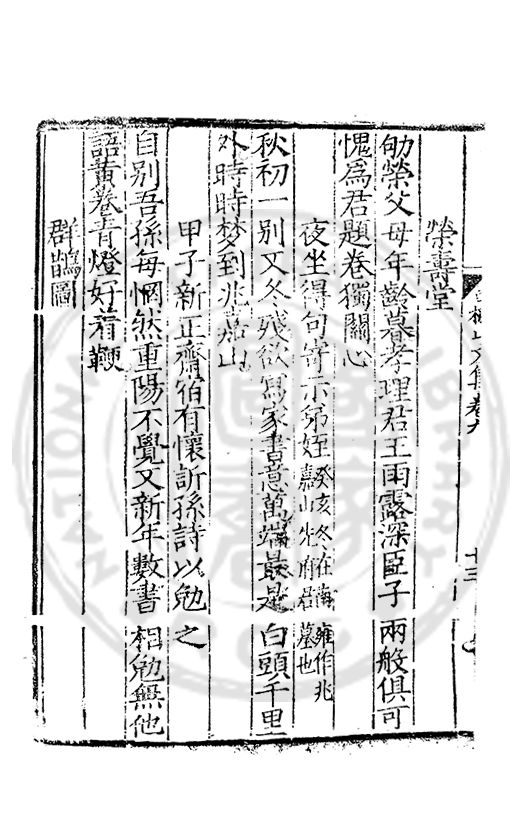 榮壽堂
劬勞父母年齡暮孝理君王雨露深臣子兩般俱可
愧爲君題卷獨關心
夜坐得句寄示弟姪癸亥冬在南雍作兆嘉山先府君墓也
秋初一別又冬殘欲寫家書意萬端最是白頭千里
外時時梦到兆嘉山
甲子新正齋宿有懷訢孫詩以勉之
自別吾孫每惘然重陽不覺又新年數書相勉無他
語黃卷青燈好着鞭
群鵲圖